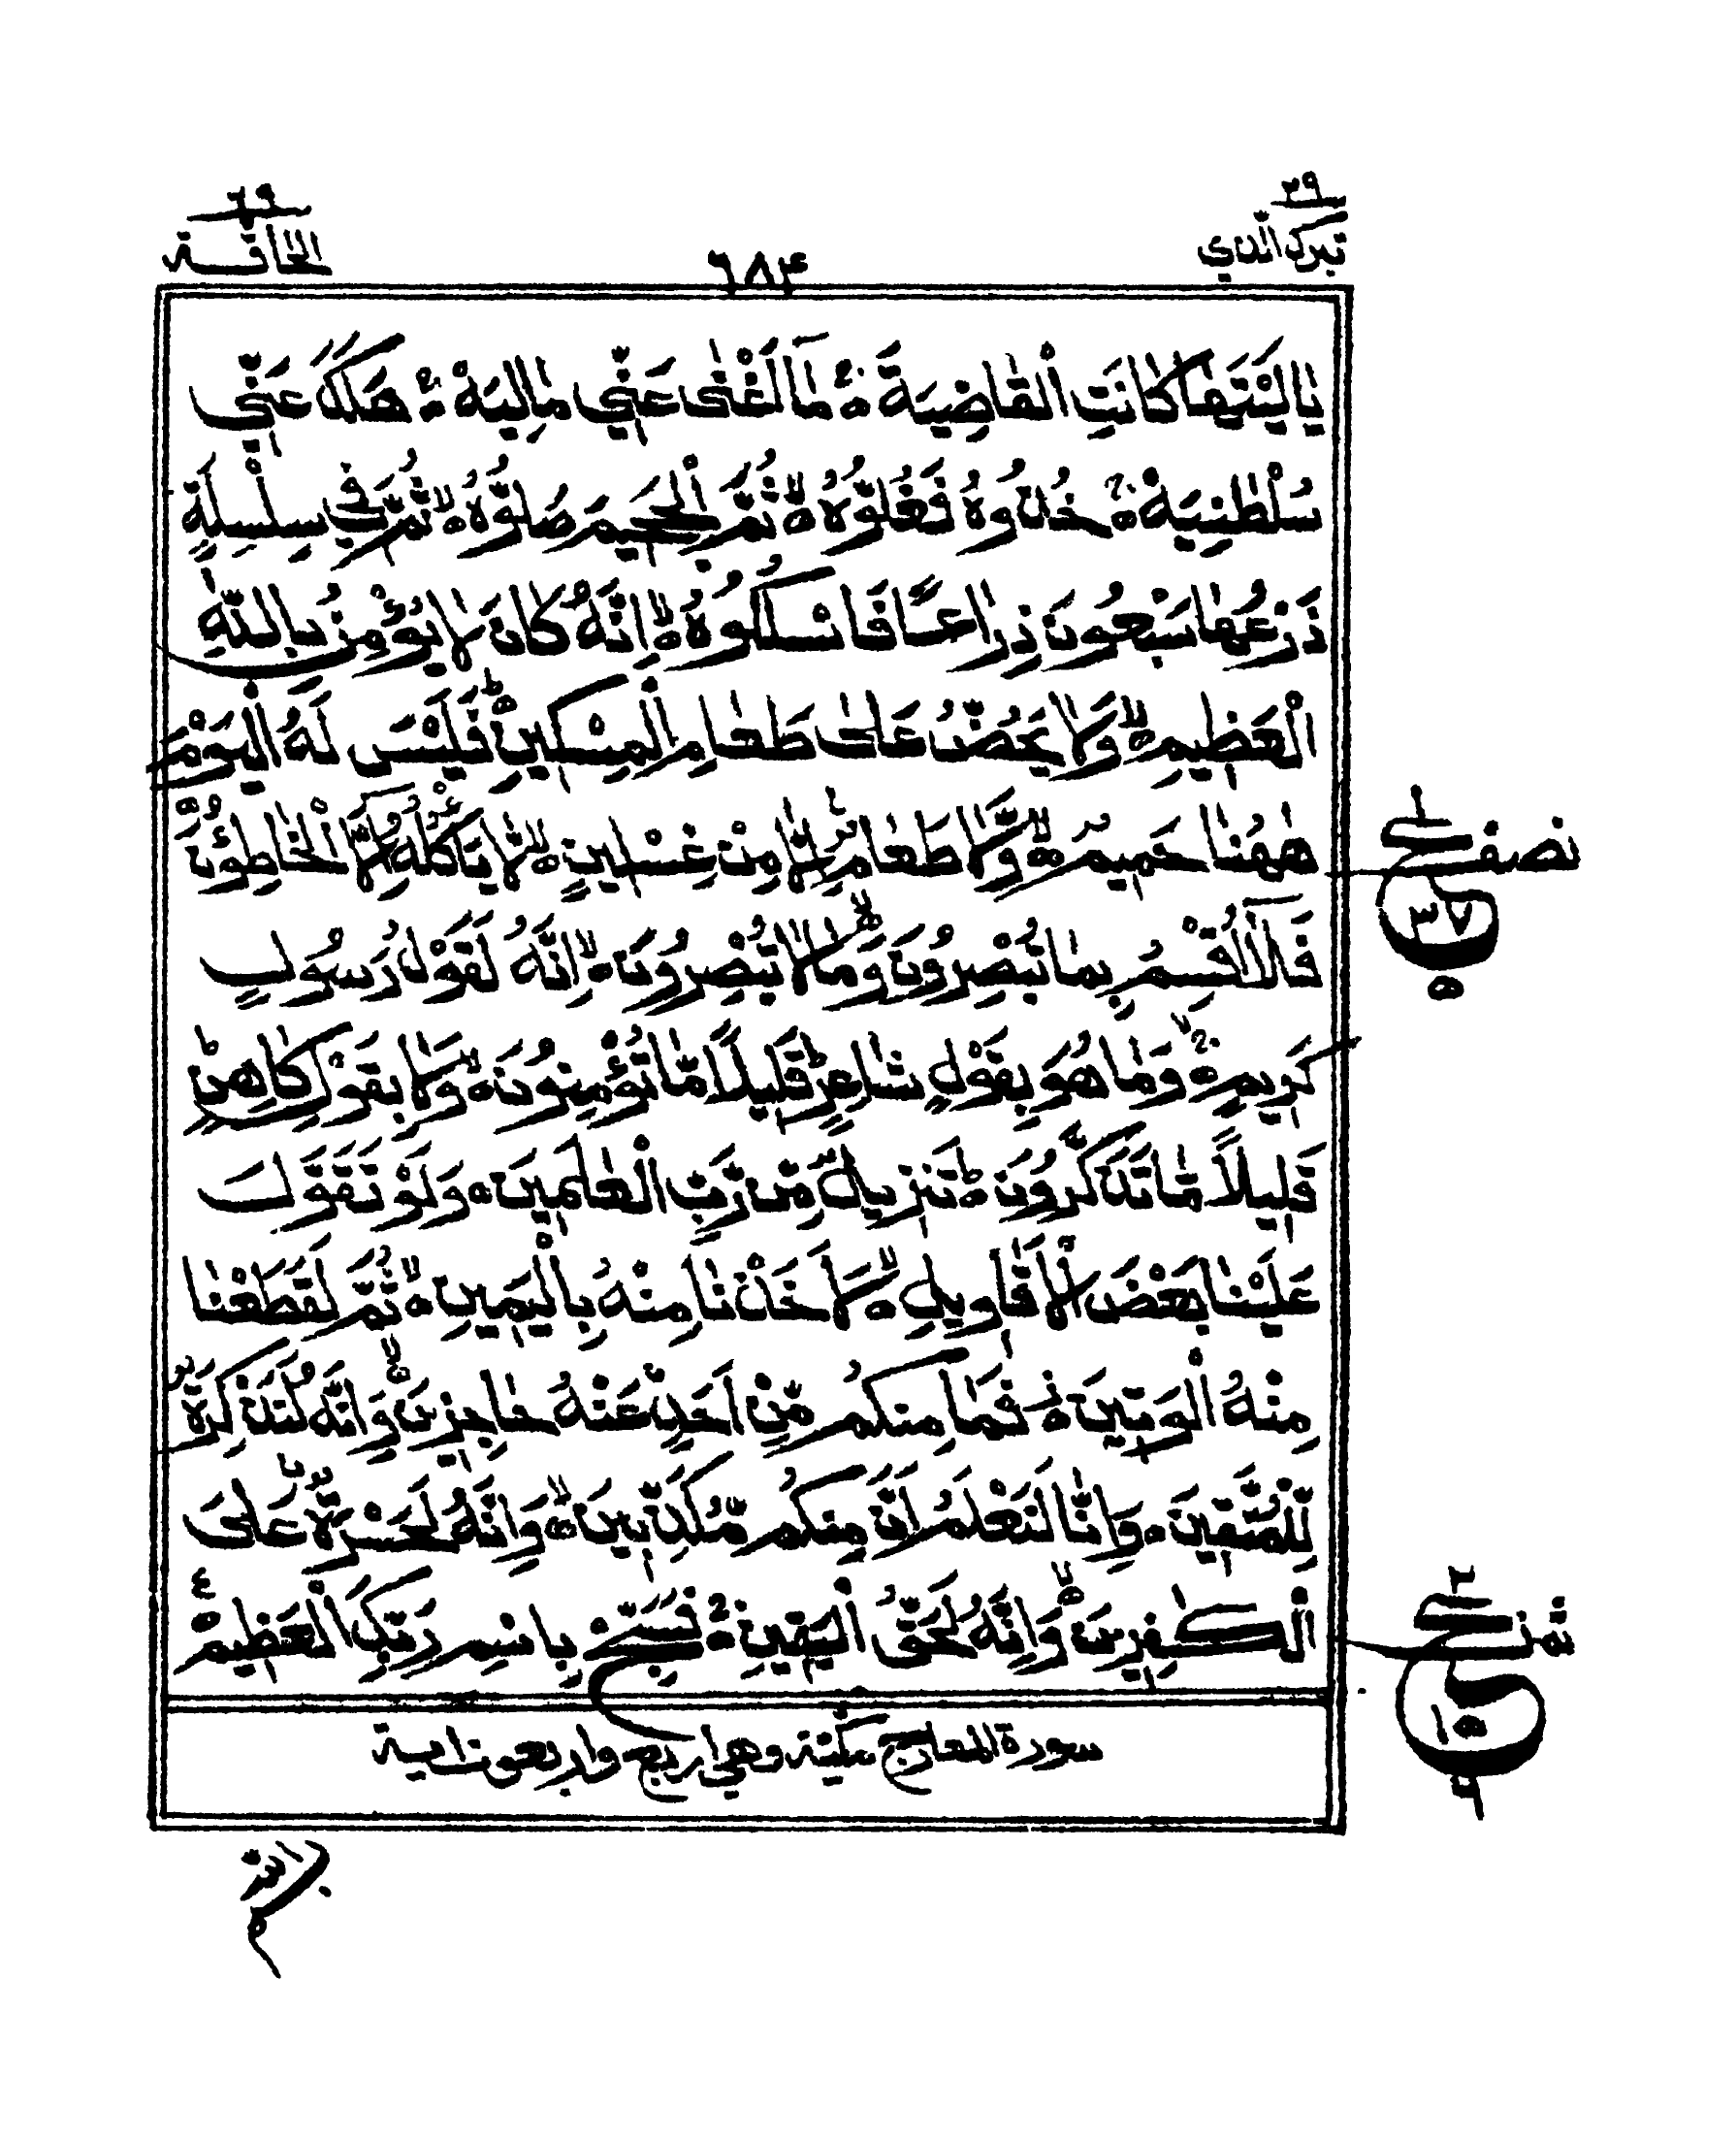 ٢٩
تبرك الذي
٦٨٤
٦٩
الحاقة
يَا لَيْتَهَا كَانَتِ الْقَاضِيَةَ ۚ مَآ اَغْنٰى عَنِّي مَالِيَهْ ۚ هَلَكَ عَنِّي
سُلْطَانِيَهْ ۚ خُذُوهُ فَغُلُّوهُ ۙ ثُمَّ الْجَحِيمَ صَلُّوهُ ۙ ثُمَّ فِي سِلْسِلَةٍ
ذَرْعُهَا سَبْعُونَ ذِرَاعًا فَاسْلُكُوهُ ۙ اِنَّهُ كَانَ لَا يُؤْمِنُ بِاللّٰهِ
الْعَظِيمِ ۙ وَلَا يَحُضُّ عَلٰى طَعَامِ الْمِسْكِينِ ۗ فَلَيْسَ لَهُ الْيَوْمَ
هٰهُنَا حَمِيمٌ ۙ وَّلَا طَعَامٌ اِلَّا مِنْ غِسْلِينٍ ۙ لَّا يَاْكُلُهُ اِلَّا الْخَاطِؤُنَ
نصف ع
٣٧
٥
فَلَآ اُقْسِمُ بِمَا تُبْصِرُونَ وَمَا لَا تُبْصِرُونَ ۙ اِنَّهُ لَقَوْلُ رَسُولٍ
كَرِيمٍ ۚ وَمَا هُوَ بِقَوْلِ شَاعِرٍ ۗ قَلِيلًا مَّا تُؤْمِنُونَ ۙ وَلَا بِقَوْلِ كَاهِنٍ ۗ
قَلِيلًا مَّا تَذَكَّرُونَ ۗ تَنْزِيلٌ مِّنْ رَّبِّ الْعَالَمِينَ ۝ وَلَوْ تَقَوَّلَ
عَلَيْنَا بَعْضَ الْاَقَاوِيلِ ۙ لَاَخَذْنَا مِنْهُ بِالْيَمِينِ ۙ ثُمَّ لَقَطَعْنَا
مِنْهُ الْوَتِينَ ۝ فَمَا مِنكُم مِّنْ اَحَدٍ عَنْهُ حَاجِزِينَ ۙ وَاِنَّهُ لَتَذْكِرَةٌ
لِّلْمُتَّقِينَ ۝ وَاِنَّا لَنَعْلَمُ اَنَّ مِنكُم مُّكَذِّبِينَ ۙ وَاِنَّهُ لَحَسْرَةٌ عَلَى
الْكٰفِرِينَ ۙ وَاِنَّهُ لَحَقُّ الْيَقِينِ ۚ فَسَبِّحْ بِاسْمِ رَبِّكَ الْعَظِيمِ
٢
ع
١٥
سورة المعارج مكية وهي اربع واربعون اية